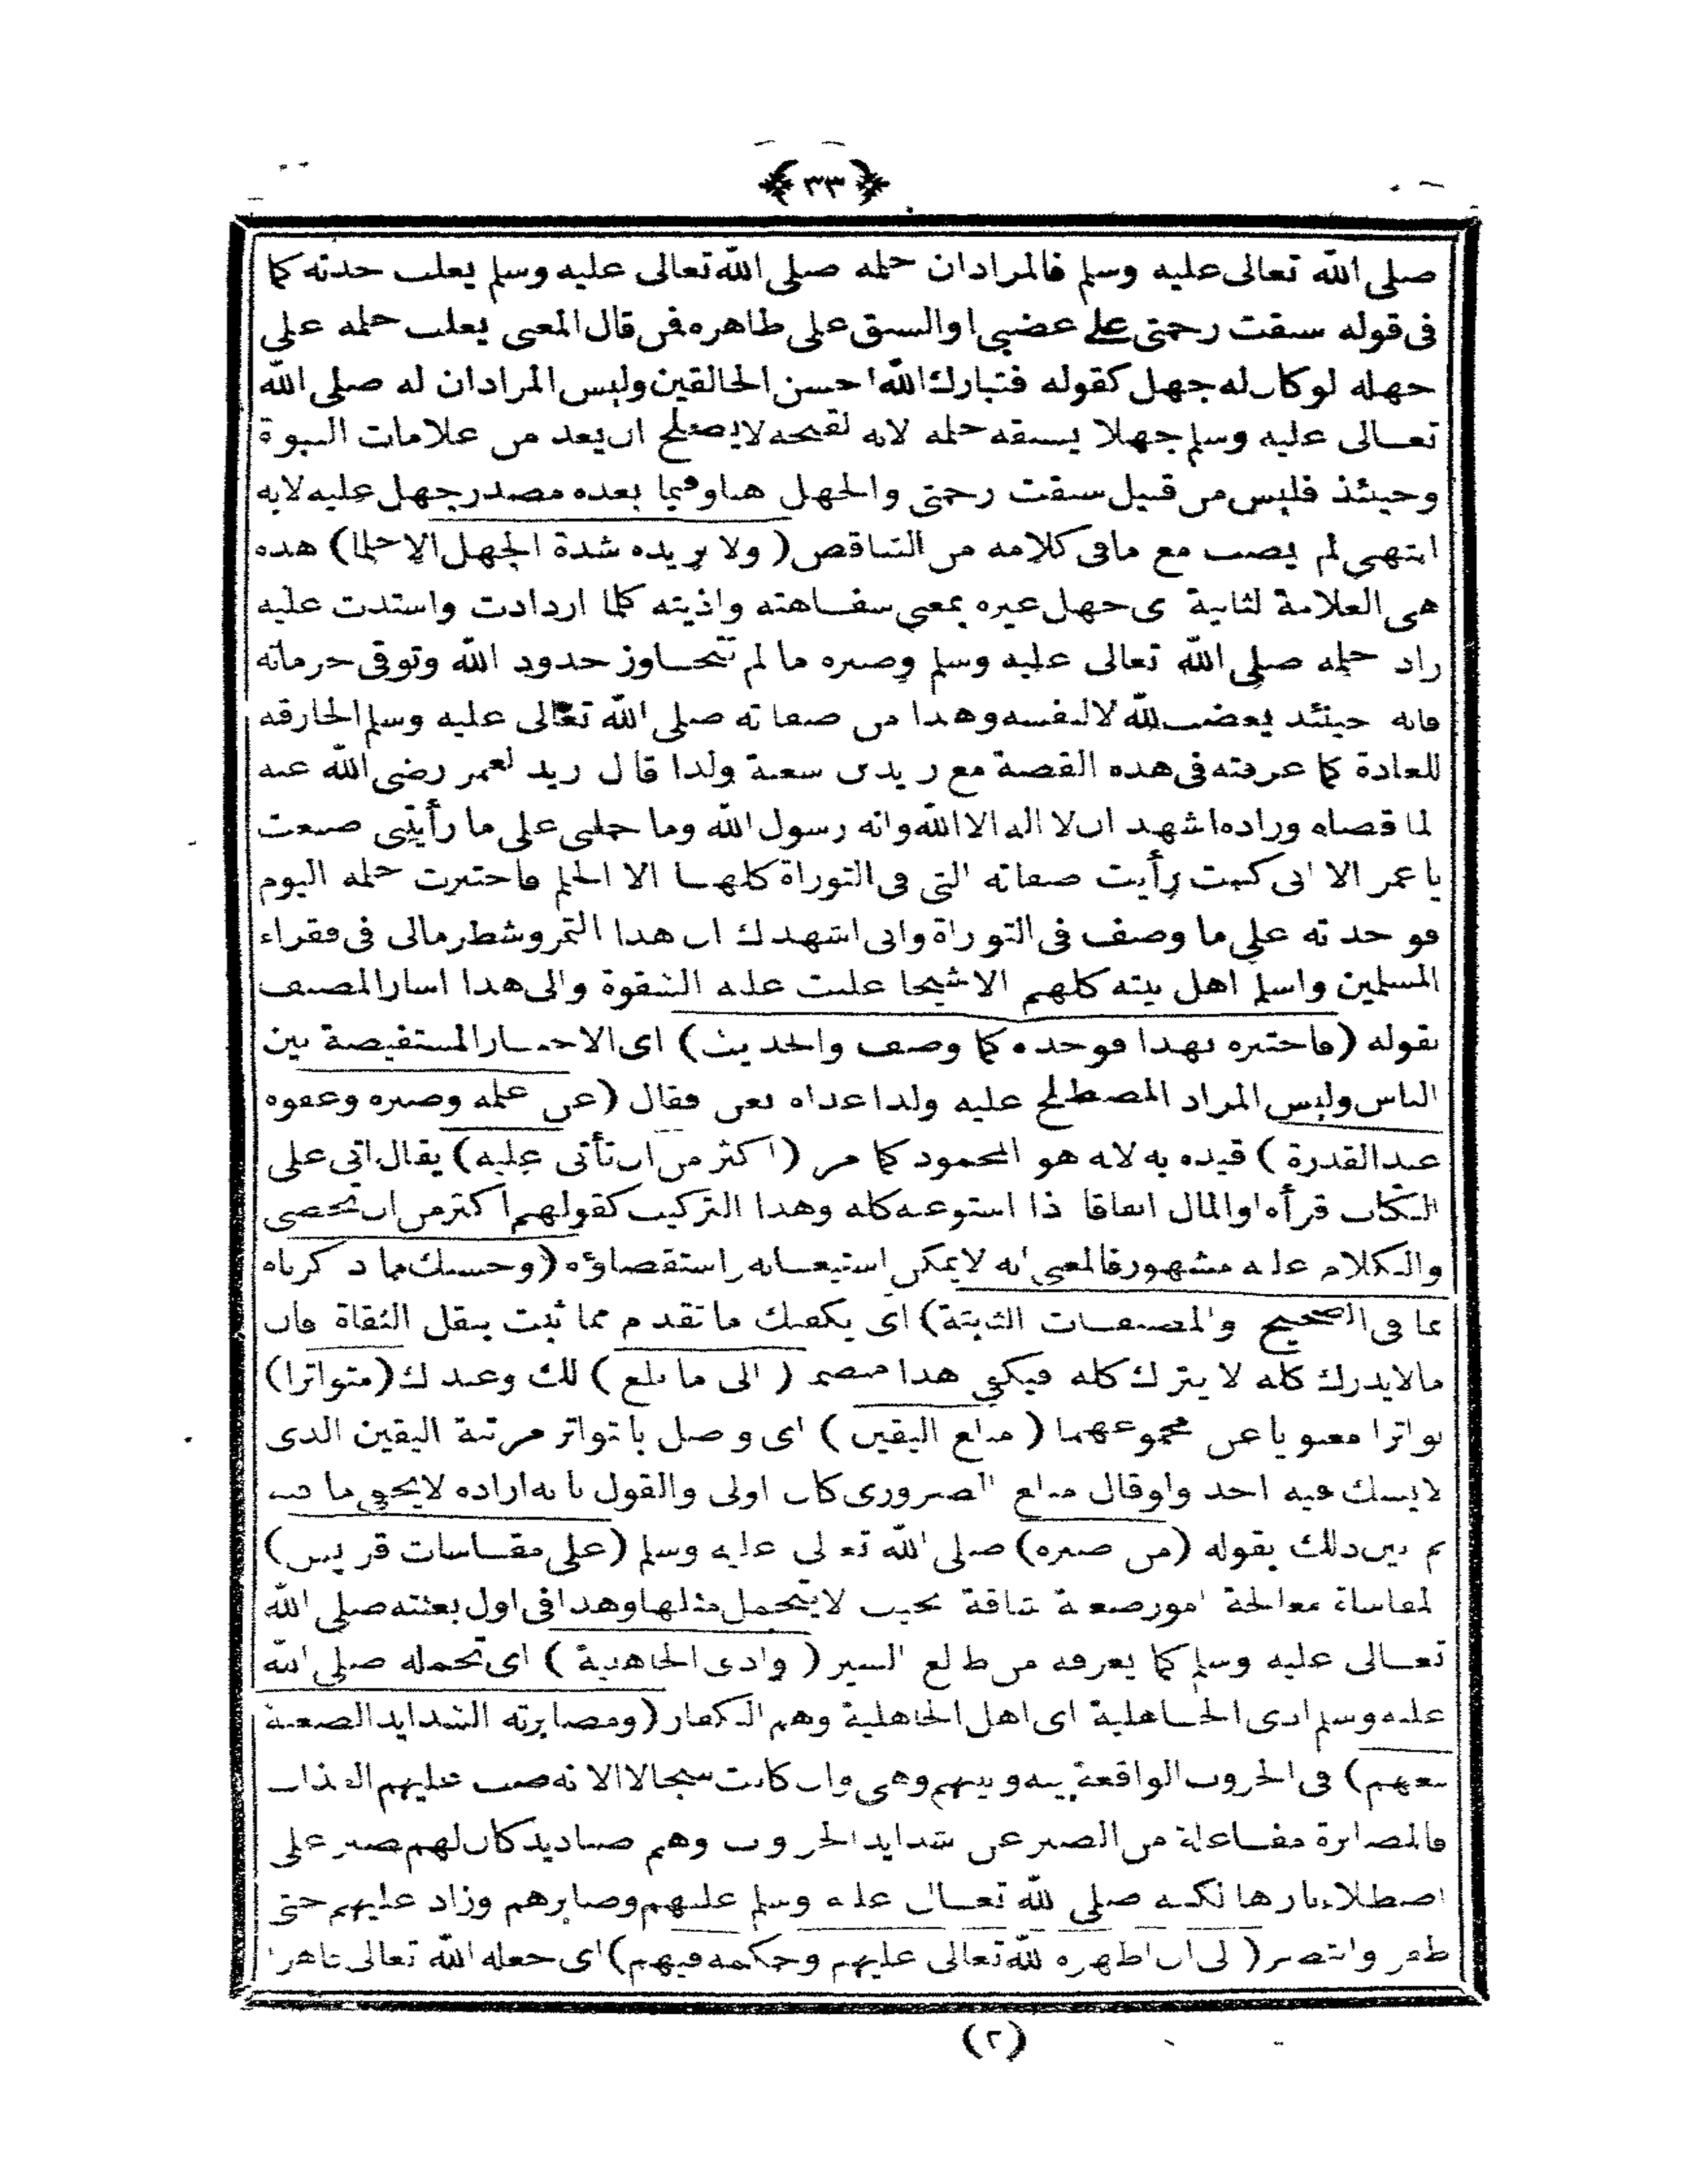 ﴿ ٣٣ ﴾
صلى الله تعالى عليه وسلم فالمراد ان حلمه صلى الله تعالى عليه وسلم يغلب حدته كما
فى قوله سبقت رحمتى على غضبى او السبق على ظاهره فمن قال المعنى يغلب حلمه على
جهله لوكان له جهل كقوله فتبارك الله احسن الخالقين وليس المراد ان له صلى الله
تعالى عليه وسلم جهلا يسبقه حلمه لانه لقبحه لايصلح ان يعد من علامات النبوة
وحينئذ فليس من قبيل سبقت رحمتى والجهل هنا وفيما بعده مصدر جهل عليه لانه
انتهى لم يصب مع مافى كلامه من التناقض ( ولا يزيده شدة الجهل الاحلما ) هذه
هى العلامة لثانية ى جهل غيره بمعنى سفاهته واذيته كلما ازدادت واشتدت عليه
زاد حلمه صلى الله تعالى عليه وسلم وصبره ما لم تتجاوز حدود الله وتوقى حرماته
فانه حينئذ يغضب لله لالنفسه وهذا من صفاته صلى الله تعالى عليه وسلم الخارقه
للعادة كما عرفته فى هذه القصة مع زيد بن سعنة ولذا قال زيد لعمر رضى الله عنه
لما قضاه وزاده اشهد ان لا اله الا الله وانه رسول الله وما حملنى على ما رأيتنى صنعت
يا عمر الا انى كنت رأيت صفاته التى فى التوراة كلها الا الحلم فاختبرت حلمه اليوم
فوجدته على ما وصف فى التوراة وانى اشهدك ان هذا التمر وشطر مالى فى فقراء
المسلمين واسلم اهل بيته كلهم الا شيخا غلبت عليه الشقوة والى هذا اشار المصنف
بقوله ( فاختبره بهذا فوجده كما وصف والحديث ) اى الاخبار المستفيضة بين
الناس وليس المراد المصطلح عليه ولذا عداه بعن فقال ( عن حلمه وصبره وعفوه
عند القدرة ) قيده به لانه هو المحمود كما مر ( اكثر من ان تأتى عليه ) يقال اتى على
الكتاب قرأه او المال انفاقا ذا استوعبه كله وهذا التركيب كقولهم اكثر من ان تحصى
والكلام عليه مشهور فالمعنى انه لايمكن استيعابه واستقصاؤه ( وحسبك ما ذكرناه
مما فى الصحيح والمصنفات الثابتة ) اى يكفيك ما تقدم مما ثبت بنقل الثقاة فان
مالايدرك كله لا يترك كله فيكفى هذا منضم ( الى ما بلغ ) لك وعندك ( متواترا )
تواترا معنويا عن مجموعهما ( مبلغ اليقين ) اى وصل بالتواتر مرتبة اليقين الذى
لايشك فيه احد ولوقال مبلغ الضرورى كان اولى والقول بانه اراده لايخفى ما فيه
ثم بين ذلك بقوله ( من صبره ) صلى الله تعالى عليه وسلم ( على مقاسات قريش )
لمقاساة معالجة امور صعبة شاقة بحيث لايتحمل مثلها وهذا فى اول بعثته صلى الله
تعالى عليه وسلم كما يعرفه من طالع السير ( واذى الجاهلية ) اى تحمله صلى الله
عليه وسلم اذى الجاهلية اى اهل الجاهلية وهم الكفار ( ومصابرته الشدايد الصعبة
معهم ) فى الحروب الواقعة بينه وبينهم وهى وان كانت سجالا الا انه صب عليهم العذاب
فالمصابرة مفاعلة من الصبر عن شدايد الحروب وهم صناديد كان لهم صبر على
اصطلاء نارها لكنه صلى الله تعالى عليه وسلم غلبهم وصابرهم وزاد عليهم حتى
ظفر وانتصر ( لى ان اظهره الله تعالى عليهم وحكمه فيهم ) اى جعله الله تعالى ظاهرا
(٢)